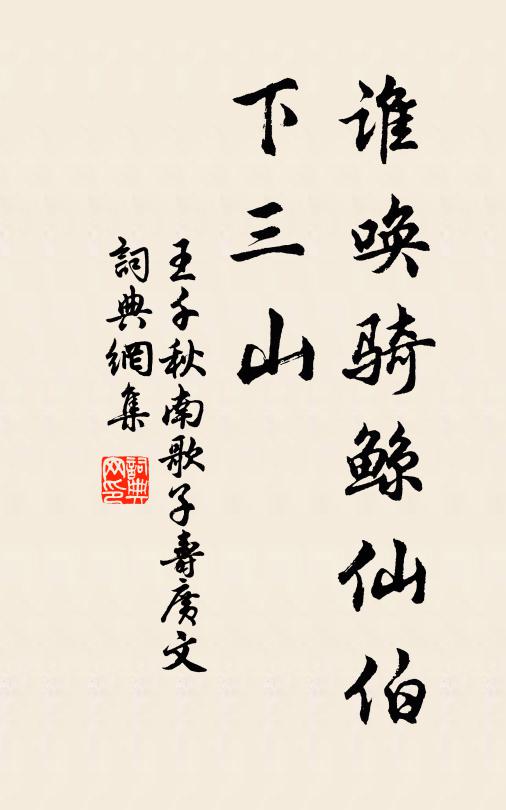 谁唤骑鲸仙伯
下三山
王千秋南歌子壽廣文
詞典網集
詞典网印